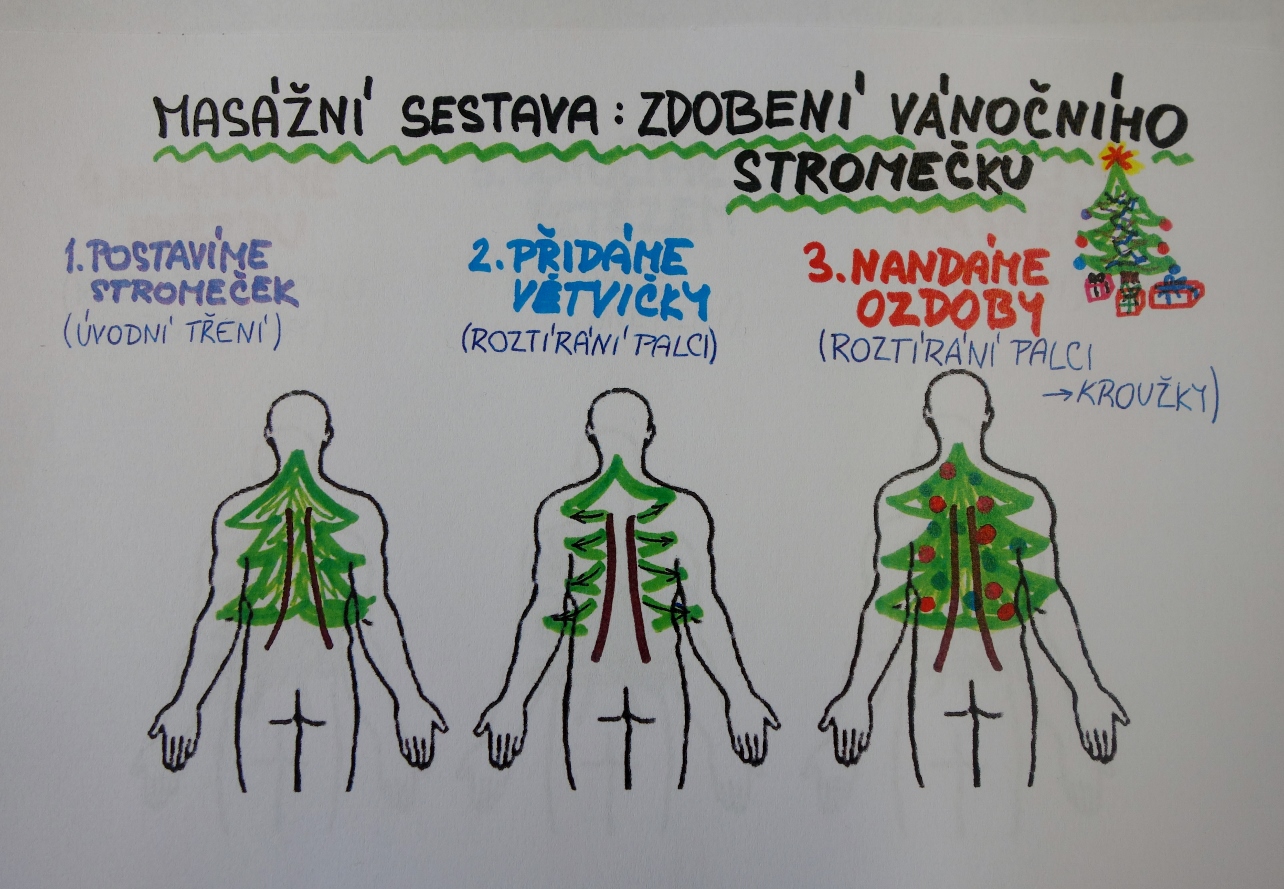 MASÁŽNÍ SESTAVA: ZDOBENÍ VÁNOČNÍHO
STROMEČKU
1. POSTAVÍME
STROMEČEK
(ÚVODNÍ TŘENÍ)
2. PŘIDÁME
VĚTVIČKY
(ROZTÍRÁNÍ PALCI)
3. NANDÁME
OZDOBY
(ROZTÍRÁNÍ PALCI
→ KROUŽKY)